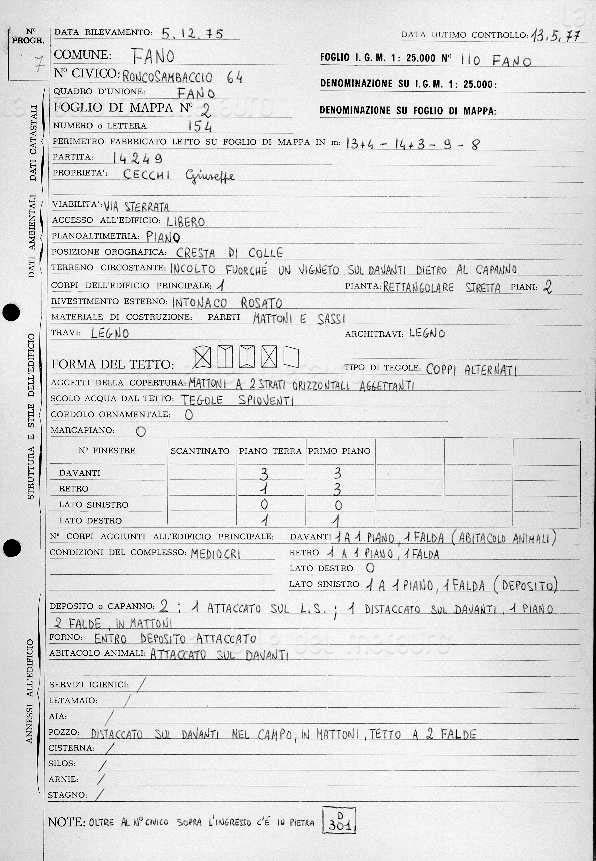 N° PROGR. 7
DATA RILEVAMENTO: 5.12.75
DATA ULTIMO CONTROLLO: 13.5.77
COMUNE: FANO
FOGLIO I.G.M. 1: 25.000 N° 110 FANO
N° CIVICO: RONCOSAMBACCIO 64
DENOMINAZIONE SU I.G.M. 1: 25.000:
QUADRO D'UNIONE: FANO
FOGLIO DI MAPPA N° 2
DENOMINAZIONE SU FOGLIO DI MAPPA:
NUMERO o LETTERA 154
PERIMETRO FABBRICATO LETTO SU FOGLIO DI MAPPA IN m: 13+4 - 14+3 - 9 - 8
PARTITA: 14249
PROPRIETA': CECCHI Giuseppe
DATI CATASTALI
VIABILITA': VIA STERRATA
ACCESSO ALL'EDIFICIO: LIBERO
PLANOALTIMETRIA: PIANO
POSIZIONE OROGRAFICA: CRESTA DI COLLE
TERRENO CIRCOSTANTE: INCOLTO FUORCHÉ UN VIGNETO SUL DAVANTI DIETRO AL CAPANNO
DATI AMBIENTALI
CORPI DELL'EDIFICIO PRINCIPALE: 1 PIANTA: RETTANGOLARE STRETTA PIANI: 2
RIVESTIMENTO ESTERNO: INTONACO ROSATO
MATERIALE DI COSTRUZIONE: PARETI MATTONI E SASSI
TRAVI: LEGNO ARCHITRAVI: LEGNO
FORMA DEL TETTO: TIPO DI TEGOLE: COPPI ALTERNATI
AGGETTI DELLA COPERTURA: MATTONI A 2 STRATI ORIZZONTALI AGGETTANTI
SCOLO ACQUA DAL TETTO: TEGOLE SPIOVENTI
CORDOLO ORNAMENTALE: O
MARCAPIANO: O
N° FINESTRE SCANTINATO PIANO TERRA PRIMO PIANO
DAVANTI 3 3
RETRO 1 3
LATO SINISTRO 0 0
LATO DESTRO 1 1
STRUTTURA E STILE DELL'EDIFICIO
N° CORPI AGGIUNTI ALL'EDIFICIO PRINCIPALE: DAVANTI 1 A 1 PIANO, 1 FALDA (ABITACOLO ANIMALI)
CONDIZIONI DEL COMPLESSO: MEDIOCRI RETRO 1 A 1 PIANO, 1 FALDA
LATO DESTRO O
LATO SINISTRO 1 A 1 PIANO, 1 FALDA (DEPOSITO)
DEPOSITO o CAPANNO: 2 ; 1 ATTACCATO SUL L.S. ; 1 DISTACCATO SUL DAVANTI, 1 PIANO
2 FALDE, IN MATTONI
FORNO: ENTRO DEPOSITO ATTACCATO
ABITACOLO ANIMALI: ATTACCATO SUL DAVANTI
SERVIZI IGIENICI: /
LETAMAIO: /
AIA: /
POZZO: DISTACCATO SUL DAVANTI NEL CAMPO, IN MATTONI, TETTO A 2 FALDE
CISTERNA: /
SILOS: /
ARNIE: /
STAGNO: /
ANNESSI ALL'EDIFICIO
NOTE: OLTRE AL N° CIVICO SOPRA L'INGRESSO C'È IN PIETRA D
301